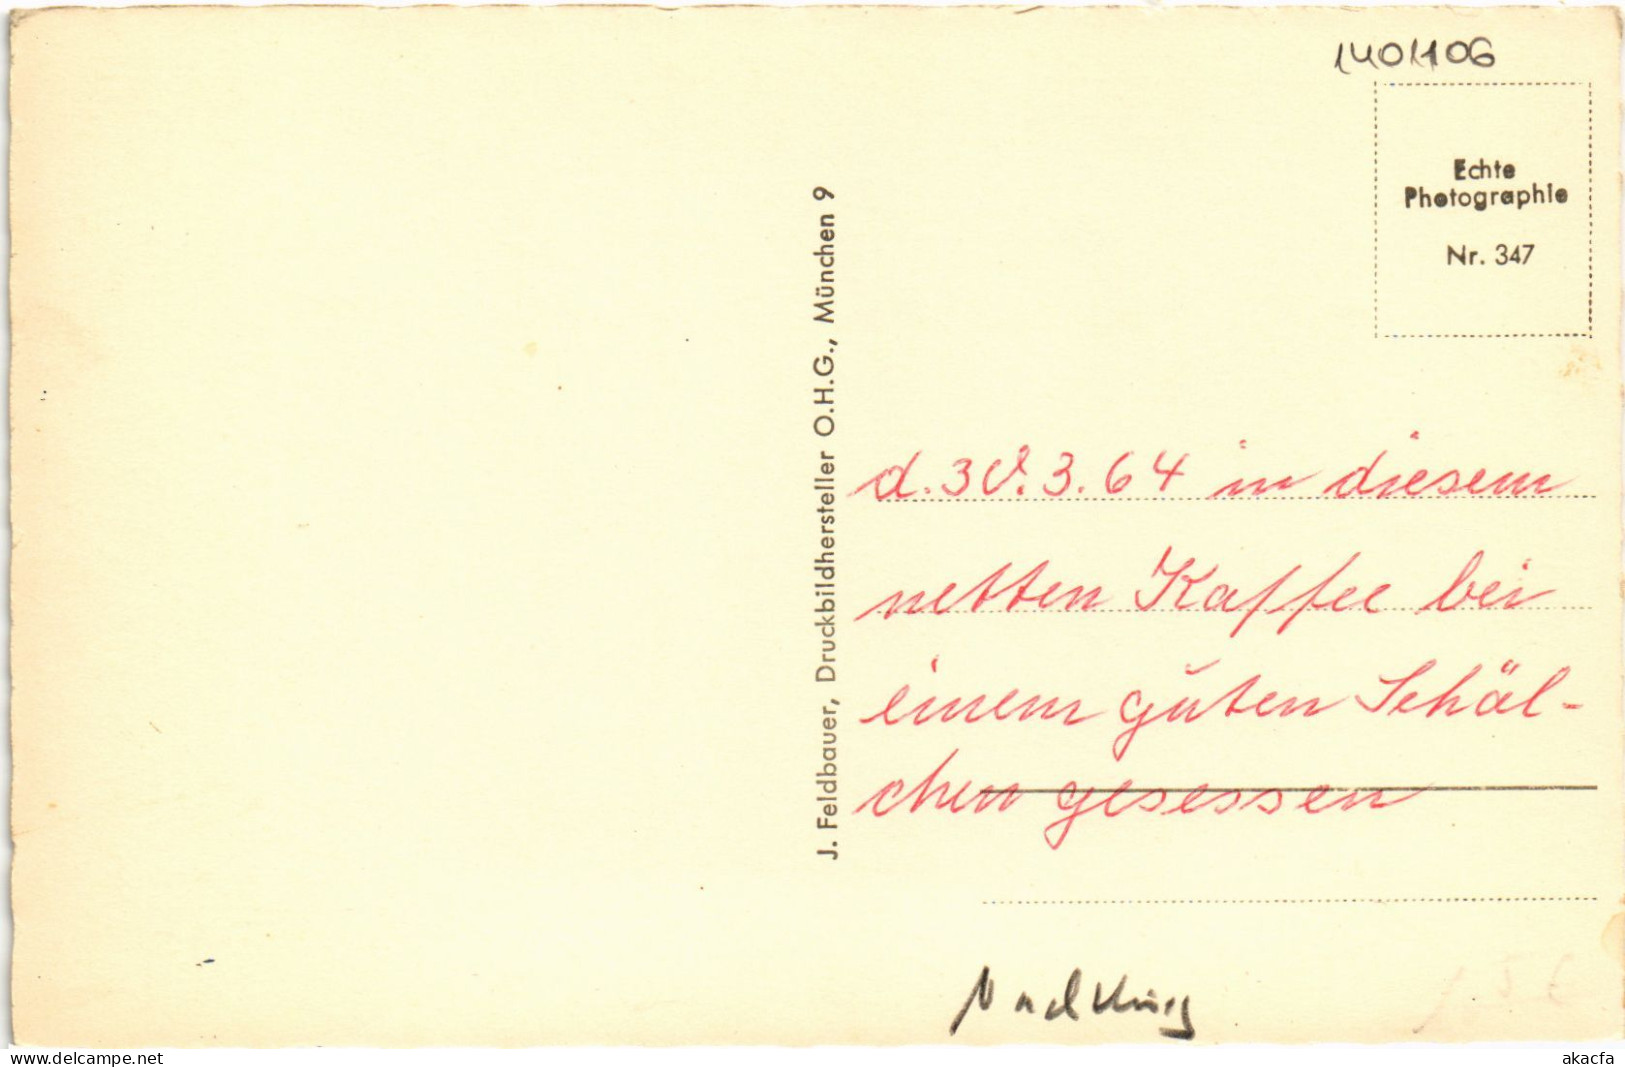 1401106
Echte
Photographie
Nr. 347
J. Feldbauer, Druckbildhersteller O.H.G., München 9
d. 30. 3. 64 in diesem
netten Kaffee bei
einem guten Schäl-
chen gesessen
www.delcampe.net
akacfa